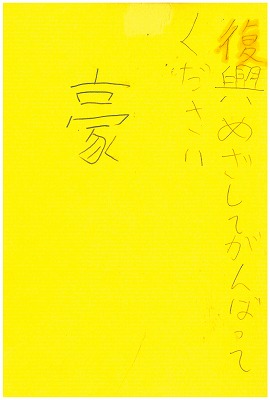 復興めざしてがんばって
ください
豪